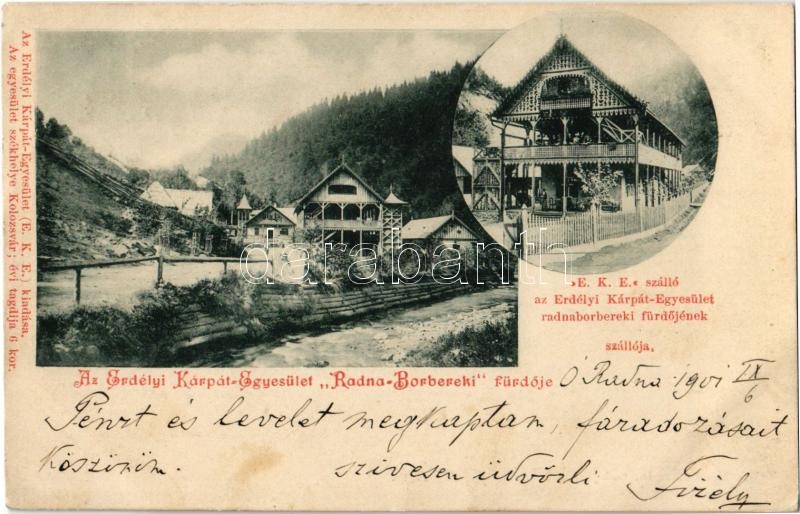 Az Erdélyi Kárpát-Egyesület (E. K. E.) kiadása.
Az egyesület székhelye Kolozsvár; évi tagdíja 6 kor.
»E. K. E.« szálló
az Erdélyi Kárpát-Egyesület
radnaborbereki fürdőjének
szállója.
Az Erdélyi Kárpát-Egyesület „Radna-Borbereki" fürdője
Ó Radna 1901 IX/6
Pénzt és levelet megkaptam, fáradozásait
köszönöm. szivesen üdvözli
darabanth.com